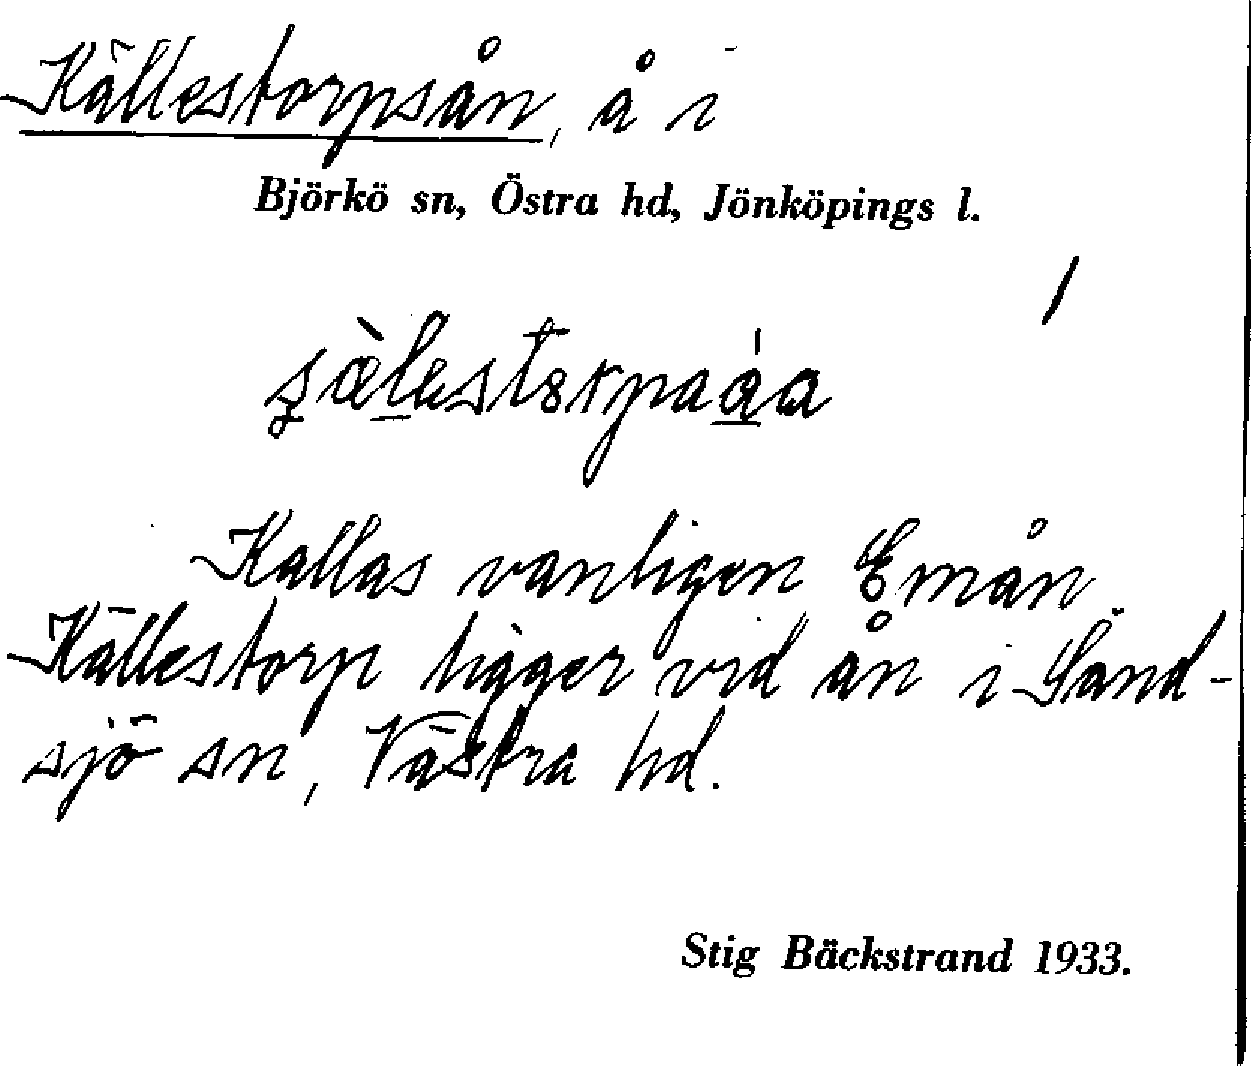 Källestorpsån, å i
Björkö sn, Östra hd, Jönköpings l.
Kallas vanligen Emån.
Källestorp ligger vid ån i Sand-
sjö sn, Västra hd.
Stig Bäckstrand 1933.